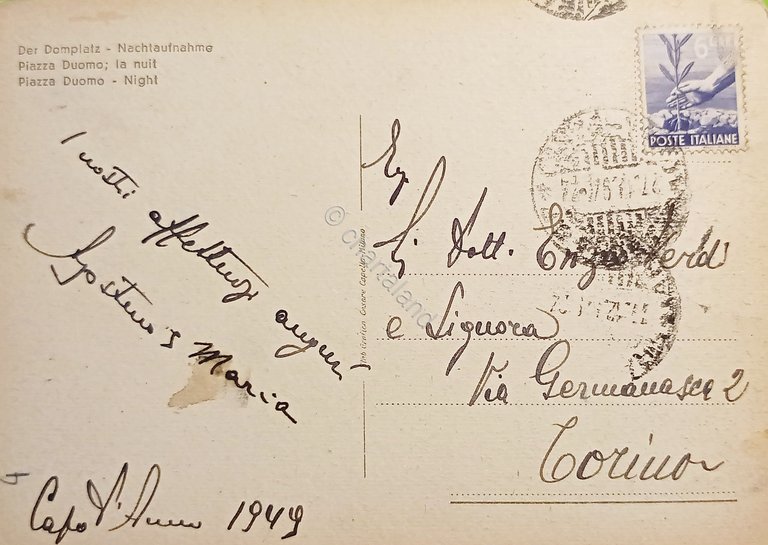 Der Domplatz - Nachtaufnahme
Piazza Duomo; la nuit
Piazza Duomo - Night
6 LIRE
POSTE ITALIANE
I nostri affettuosi auguri
Agostino e Maria
Capo d'Anno 1949
Eg.
Dott. Enzo Verdi
e Signora
Via Germanasca 2
Torino
© chartaland
Cesare Capello Milano